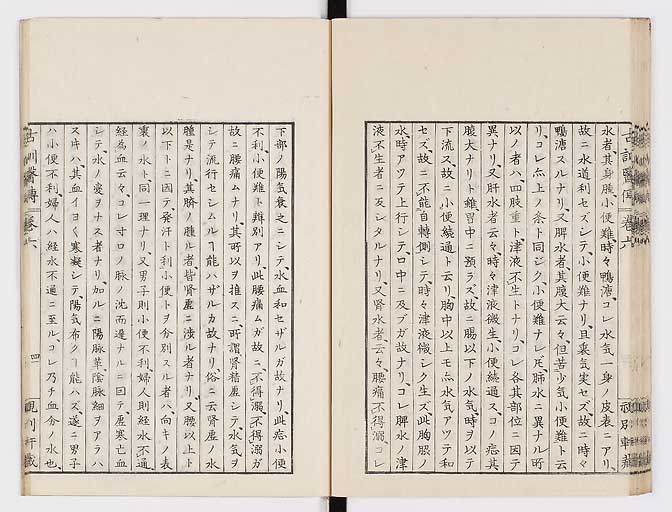 水者、其身腫、小便難、時々鴨溏、コレ水気一身ノ皮表ニアリ、
故ニ水道利セズシテ、小便難ナリ、且裏気実セズ、故ニ時々
鴨溏スルナリ、又脾水者、其腹大云々、但苦少気小便難ト云
リ、コレ亦上ノ条ト同ジク小便難ナレ𪜈肺水ニ異ナル所
以ノ者ハ、四肢重ト津液不生トナリ、コレ各其部位ニ因テ
異ナリ、又肝水者云々、時々津液微生、小便続通ス、コノ症其
腹大ナリト雖胃中ニ預ラズ、故ニ腸以下ノ水気、時ヲ以テ
下流ス、故ニ小便続通ト云リ、胸中以上モ亦水気アツテ和
セズ、故ニ不能自轉側シテ、時々津液微シク生ズ、此胸脹ノ
水、時アツテ上行シテ、口中ニ及ブガ故ナリ、コレ脾水ノ津
液不生者ニ反シタルナリ、又腎水者云々、腰痛不得溺、コレ
下部ノ陽気衰之ニシテ、水血和セザルガ故ナリ、此症小便
不利、小便難ト辨別アリ、此腰痛ムガ故ニ、不得溺、不得溺ガ
故ニ腰痛ムナリ、其所以ヲ推スニ、所謂腎稽虚シテ、水気ヲ
シテ流行セシムルヿ能ハザルカ故ナリ、俗ニ云腎虚ノ水
腫是ナリ、其臍ノ腫ル者、皆腎虚ニ渉ル者ナリ、又腰以上ト
以下トニ因テ、発汗ト利小便トヲ分別スル者ハ、向キノ表
裏ノ水ト、同一理ナリ、又男子則小便不利、婦人則経水不通
経為血云々、コレ寸口ノ脉ノ沈而遅ナルニ因テ、虚寒亡血
シテ、水ノ変ヲナス者ナリ、加ルニ陽脉革、陰脉細ヲアラハ
ス片ハ、其血イヨ〱寒凝シテ陽気布クヿ能ハズ、遂ニ男子
ハ小便不利、婦人ハ経水不通ニ至ル、コレ乃チ血分ノ水也、
古訓醫傳 巻六 四